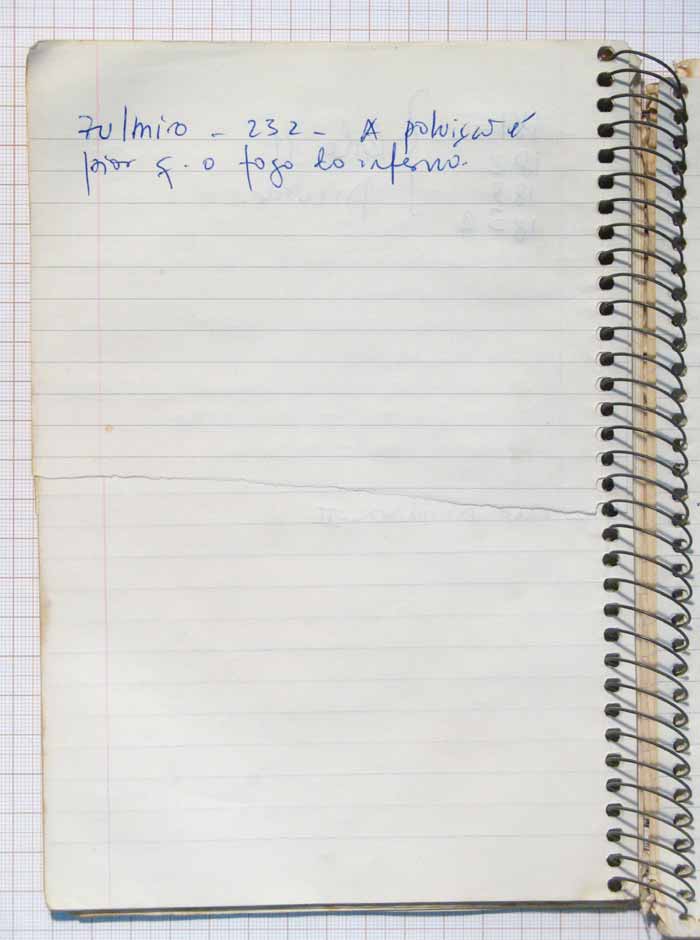 Fulmiro - 232 - A poluição é
pior q. o fogo do inferno.